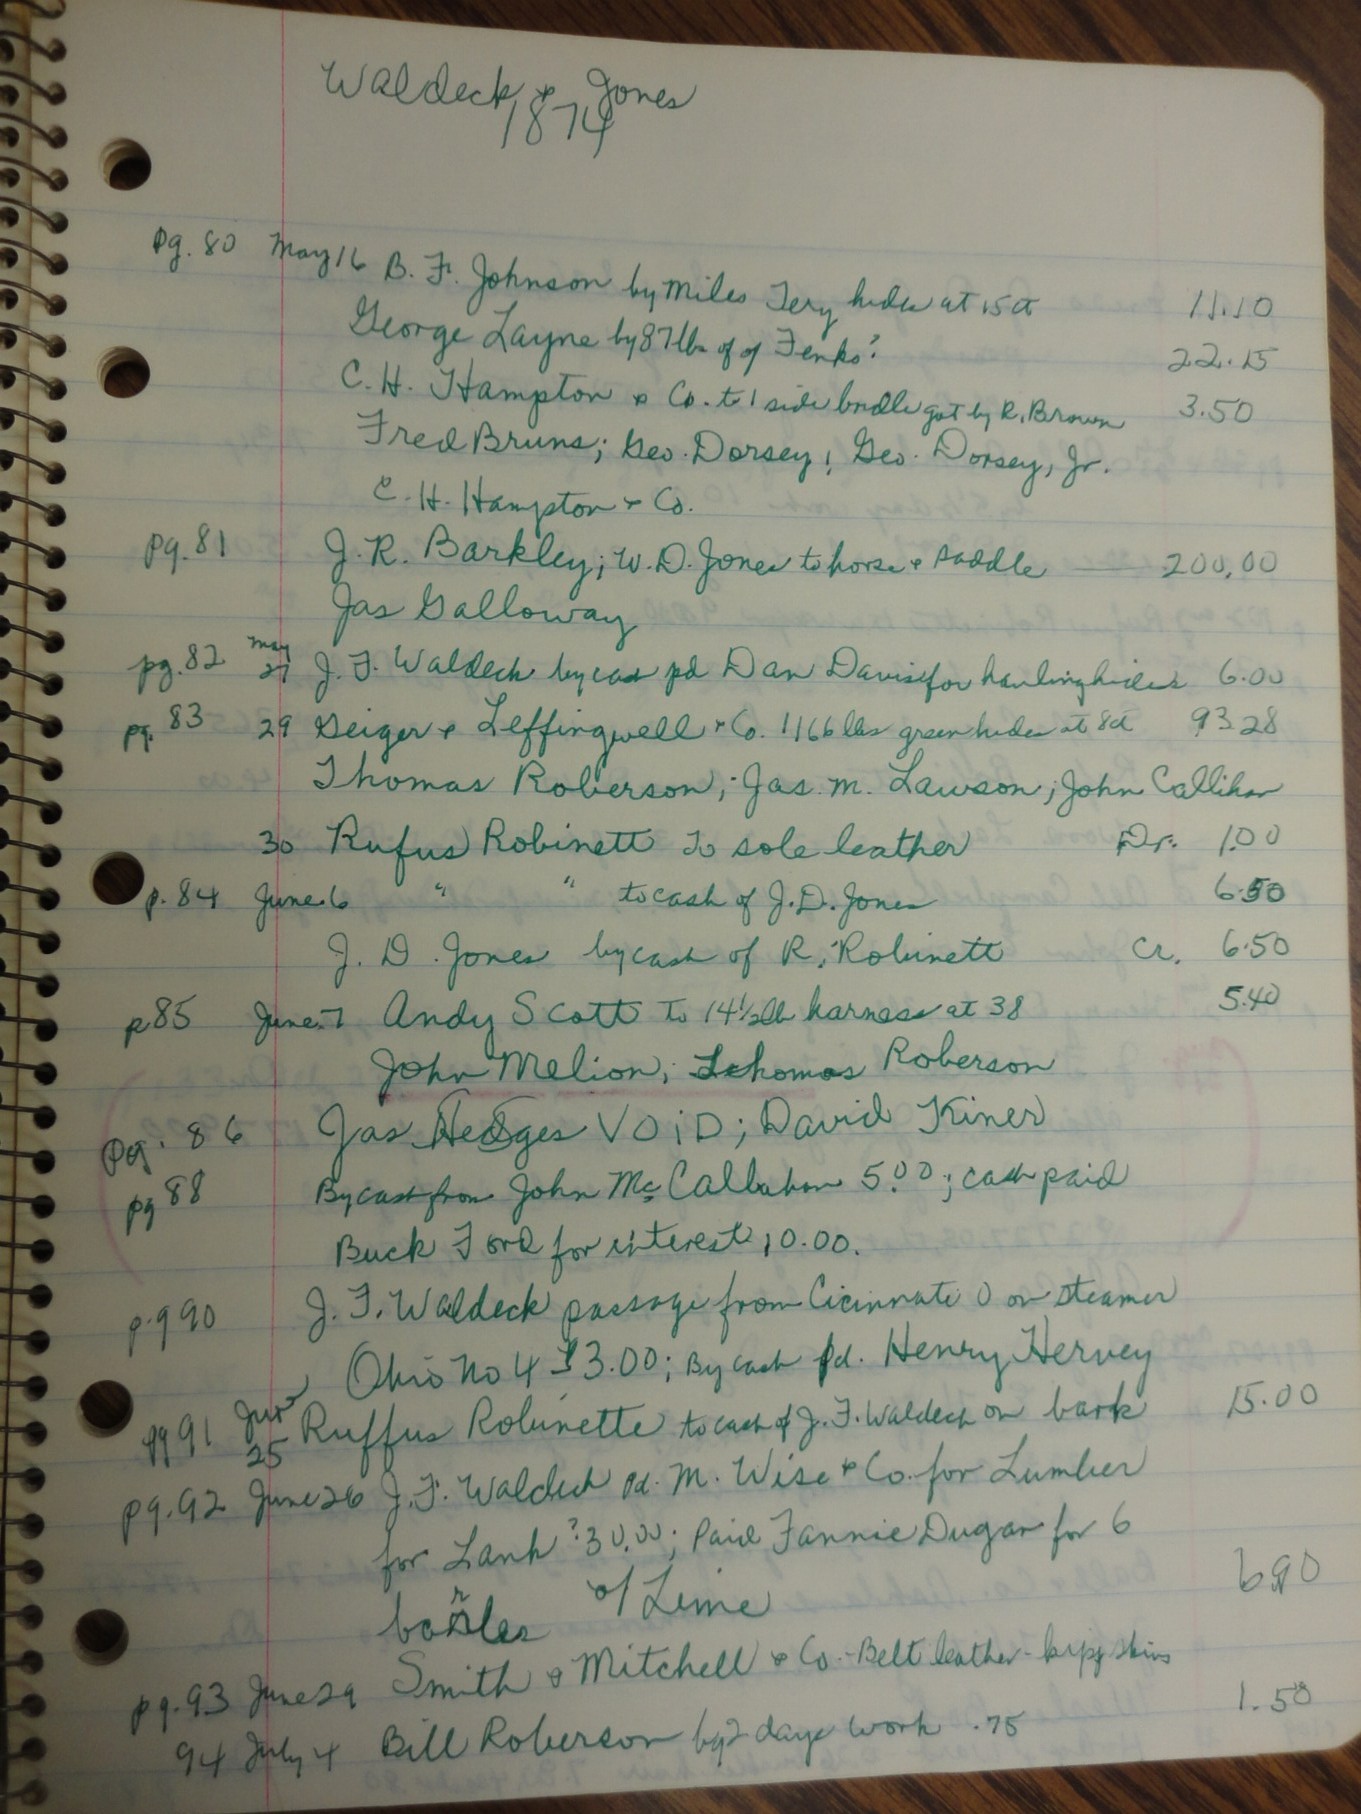 Waldeck & Jones
1874
pg. 80 May 16 B. F. Johnson by Miles Tery hides at 15 ct 11.10
George Layne by 87 lbs of of Fenks? 22.15
C. H. Hampton & Co. to 1 side bridle got by R. Brown 3.50
Fred Bruns; Geo. Dorsey; Geo. Dorsey, Jr.
C. H. Hampton & Co.
pg. 81 J. R. Barkley; W. D. Jones to horse & saddle 200.00
Jas Galloway
pg. 82 May 27 J. F. Waldeck by cash pd Dan Davis for hauling hides 6.00
pg. 83 29 Geiger & Leffingwell & Co. 1166 lbs green hides at 8 ct 93 28
Thomas Roberson; Jas. M. Lawson; John Callihan
30 Rufus Robinett To sole leather Dr. 1.00
p. 84 June 6 " " to cash of J. D. Jones 6.50
J. D. Jones by cash of R. Robinett Cr. 6.50
p 85 June 7 Andy Scott To 14 1/2 lb harness at 38 5.40
John Melion; Thomas Roberson
Pg. 86 Jas Hedges VOID; David Kiner
pg 88 By cash from John Mc Callahan 5.00; cash paid
Buck Ford for interest 10.00.
p. g 90 J. F. Waldeck passage from Cicinnate O on steamer
Ohio No 4 $3.00; By cash pd. Henry Hervey
pg 91 June 25 Ruffus Robinette to cash of J. F. Waldeck on bark 15.00
pg. 92 June 26 J. F. Waldeck pd. M. Wise & Co. for Lumber
for Lank? 30.00; Paid Fannie Dugan for 6
of Lime 6.90
pg. 93 June 29 Smith & Mitchell & Co. - Belt leather - kipp skins
94 July 4 Bill Roberson by 2 days work .75 1.50